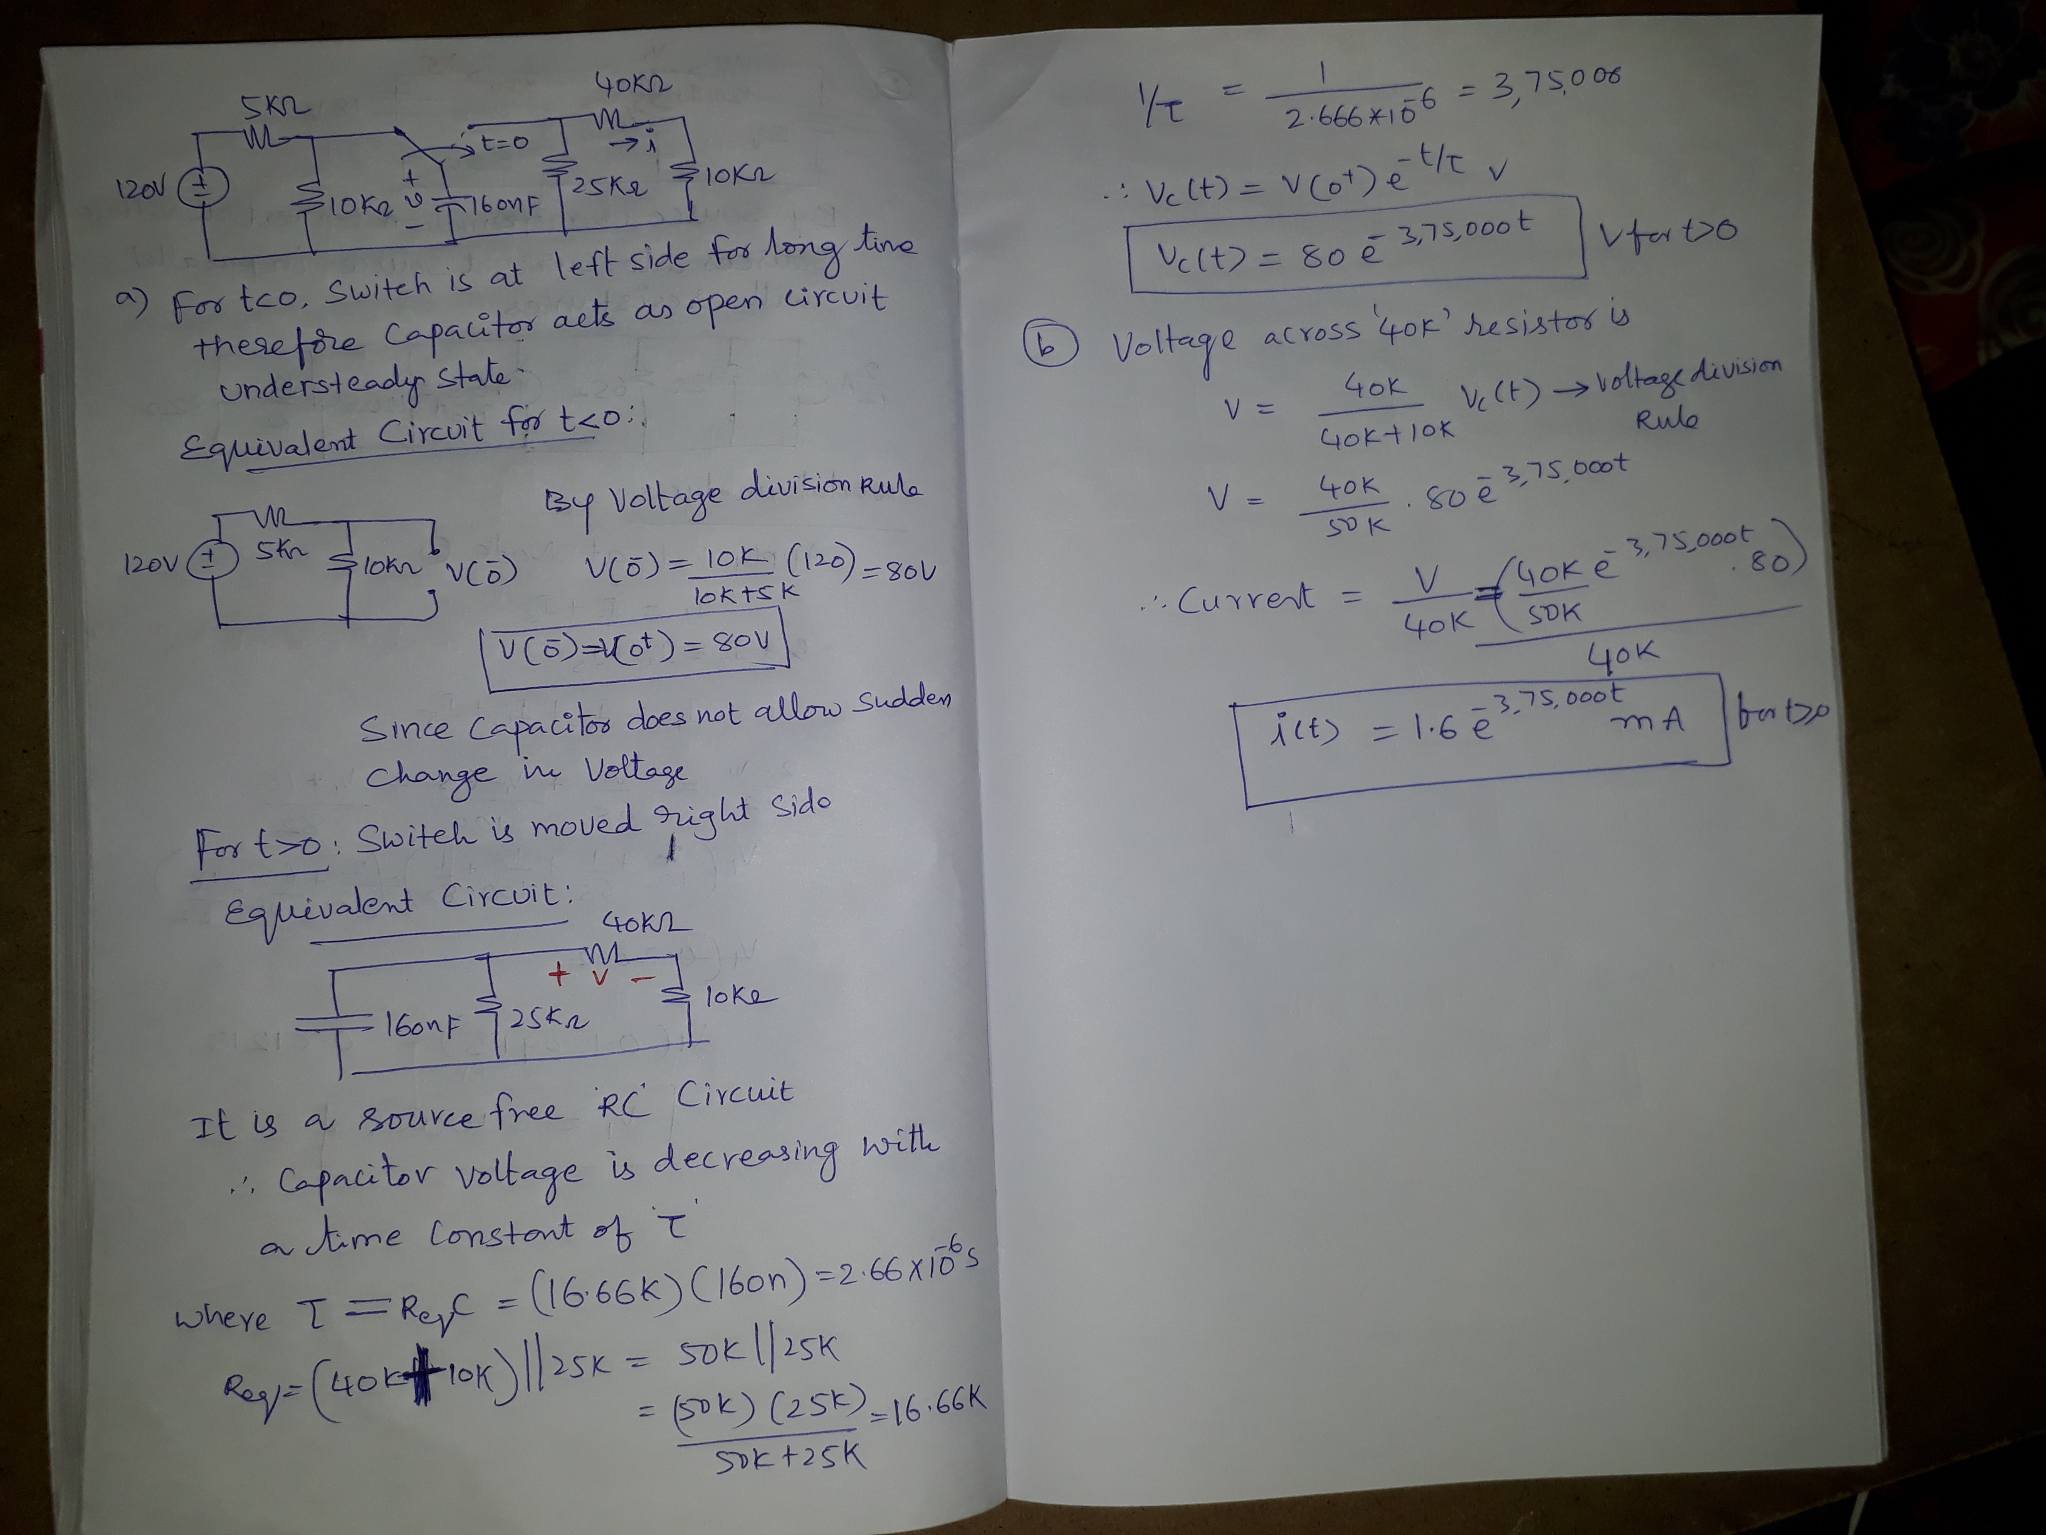 5KΩ
40KΩ
t=0
→i
120V
10KΩ
+
v
-
160nF
25KΩ
10KΩ
a) For t<0, Switch is at left side for long time
therefore Capacitor acts as open circuit
understeady state.
Equivalent Circuit for t<0:
By Voltage division Rule
120V
5KΩ
10KΩ
V(0-)
V(0-) = 10K/(10K+5K) (120) = 80V
V(0-) = V(0+) = 80V
Since Capacitor does not allow sudden
change in Voltage
For t>0: Switch is moved right side
Equivalent Circuit:
40KΩ
+ v -
160nF
25KΩ
10KΩ
It is a source free 'RC' Circuit
∴ Capacitor voltage is decreasing with
a time constant of 'τ'
where τ = ReqC = (16.66K)(160n) = 2.66×10^-6 s
Req = (40K+10K)||25K = 50K||25K
= (50K)(25K)/(50K+25K) = 16.66K
1/τ = 1/(2.666*10^-6) = 3,75,000
∴ Vc(t) = V(0+) e^-t/τ V
Vc(t) = 80 e^-3,75,000t V for t>0
(b) Voltage across '40K' resistor is
V = 40K/(40K+10K) Vc(t) → Voltage division
Rule
V = 40K/50K . 80 e^-3,75,000t
∴ Current = V/40K = (40K e^-3,75,000t/50K .80)/40K
i(t) = 1.6 e^-3,75,000t mA for t>0